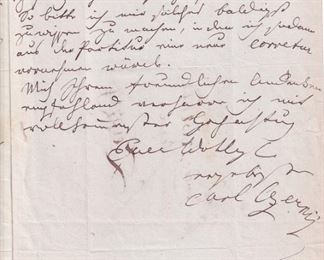 So bitte ich mir solches baldigst
zu wissen zu machen, indem ich sodann
aus der Partitur eine neue Correctur
vornehmen würde.
Mich Ihrem freundlichen Andenken
empfehlend verharre ich mit
vollkommenster Hochachtung
Euer Wohlg
ergebenst
Carl Czerny